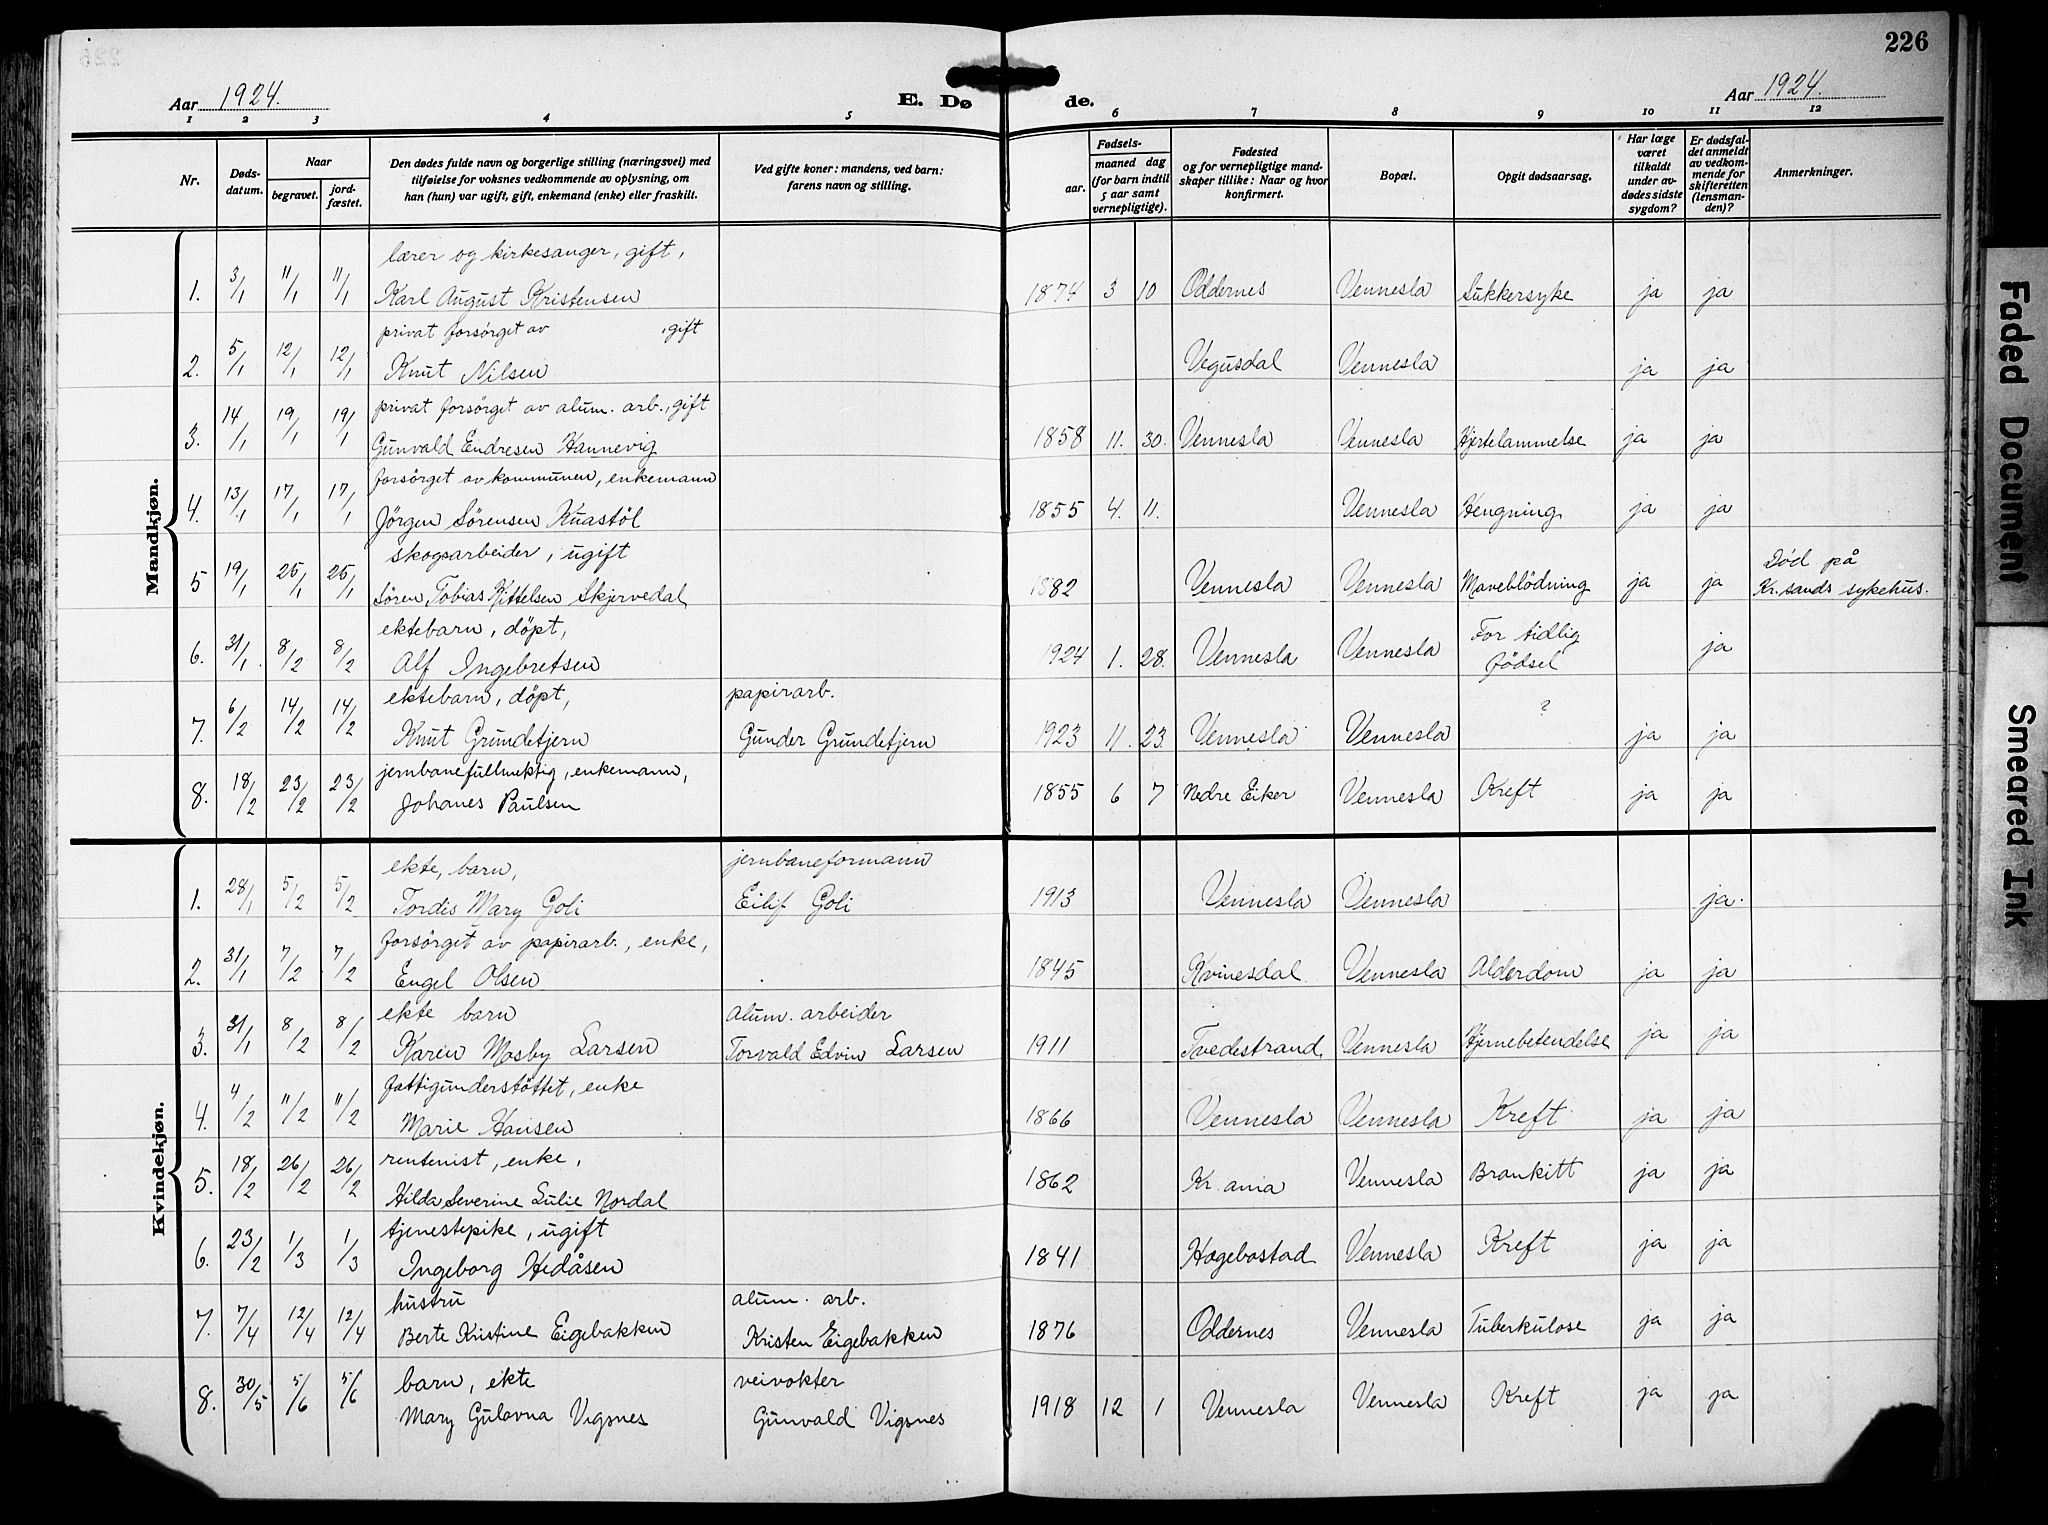 226
Aar 1924.
E. Dø
de.
Aar 1924.
1 2 3 4 5 6 7 8 9 10 11 12
Nr.
Døds-
datum.
Naar
begravet.
jord-
fæstet.
Den dødes fulde navn og borgerlige stilling (næringsvei) med
tilføielse for voksnes vedkommende av oplysning, om
han (hun) var ugift, gift, enkemand (enke) eller fraskilt.
Ved gifte koner: mandens, ved barn:
farens navn og stilling.
Fødsels-
aar.
maaned dag
(for barn indtil
5 aar samt
vernepligtige).
Fødested
og for vernepligtige mand-
skaper tillike: Naar og hvor
konfirmert.
Bopæl.
Opgit dødsaarsag.
Har læge
været
tilkaldt
under av-
dødes sidste
sygdom?
Er dødsfal-
det anmeldt
av vedkom-
mende for
skifteretten
(lensman-
den)?
Anmerkninger.
Mandkjøn.
lærer og kirkesanger, gift,
1. 3/1 11/1 11/1 Karl August Kristensen 1874 3 10 Oddernes Vennesla Sukkersyke ja ja
privat forsørget av , gift
2. 5/1 12/1 12/1 Knut Nilsen Vegusdal Vennesla ja ja
privat forsørget av alum. arb., gift
3. 14/1 19/1 19/1 Gunvald Endresen Hannevig 1858 11. 30. Vennesla Vennesla Hjertelammelse ja ja
forsørget av kommunen, enkemann
4. 13/1 17/1 17/1 Jörgen Sörensen Kuastöl 1855 4. 11. Vennesla Hengning ja ja
skogsarbeider, ugift
5 19/1 25/1 25/1 Sören Tobias Kittelsen Skjervedal 1882 Vennesla Vennesla Maveblödning ja ja Död på
Kr.sands sykehus.
ektebarn, döpt,
6. 31/1. 8/2 8/2 Alf Ingebretsen 1924 1. 28. Vennesla Vennesla For tidlig
födsel ja
ektebarn, döpt, papirarb.
7. 6/2 14/2 14/2 Knut Grundetjern Gunder Grundetjern 1923 11. 23. Vennesla Vennesla ? ja ja
jernbanefullmektig, enkemann,
8. 18/2 23/2 23/2 Johanes Paulsen 1855 6 7 Nedre Eiker Vennesla Kreft ja ja
Kvindekjøn.
ekte, barn, jernbaneformann
1. 28/1 5/2 5/2 Tordis Mary Goli Eilif Goli 1913 Vennesla Vennesla ja.
forsörget av papirarb., enke,
2. 31/1 7/2 7/2 Engel Olsen 1845 Kvinesdal Vennesla Alderdom ja ja
ekte barn alum. arbeider
3. 31/1 8/2 8/2 Karen Mosby Larsen Torvald Edvin Larsen 1911 Tvedestrand Vennesla Hjernebetendelse ja ja
fattigunderstöttet, enke
4. 4/2 11/2 11/2 Marie Hansen 1866 Vennesla Vennesla Kreft ja ja
rentenist, enke,
5. 18/2 26/2 26/2 Hilda Severine Lulie Nordal 1862 Kr. ania Vennesla Bronkitt ja ja
tjenestepike, ugift
6. 23/2 1/3 1/3 Ingeborg Hedåsen 1841 Hægebostad Vennesla Kreft ja ja
hustru alum. arb.
7. 7/4 12/4 12/4 Berte Kristine Eigebakken Kristen Eigebakken 1876 Oddernes Vennesla Tuberkulose ja ja
barn, ekte veivokter
8. 30/5 5/6 5/6 Mary Gulovna Vigsnes Gunvald Vigsnes 1918 12 1 Vennesla Vennesla Kreft ja ja
Faded Document
Smeared Ink